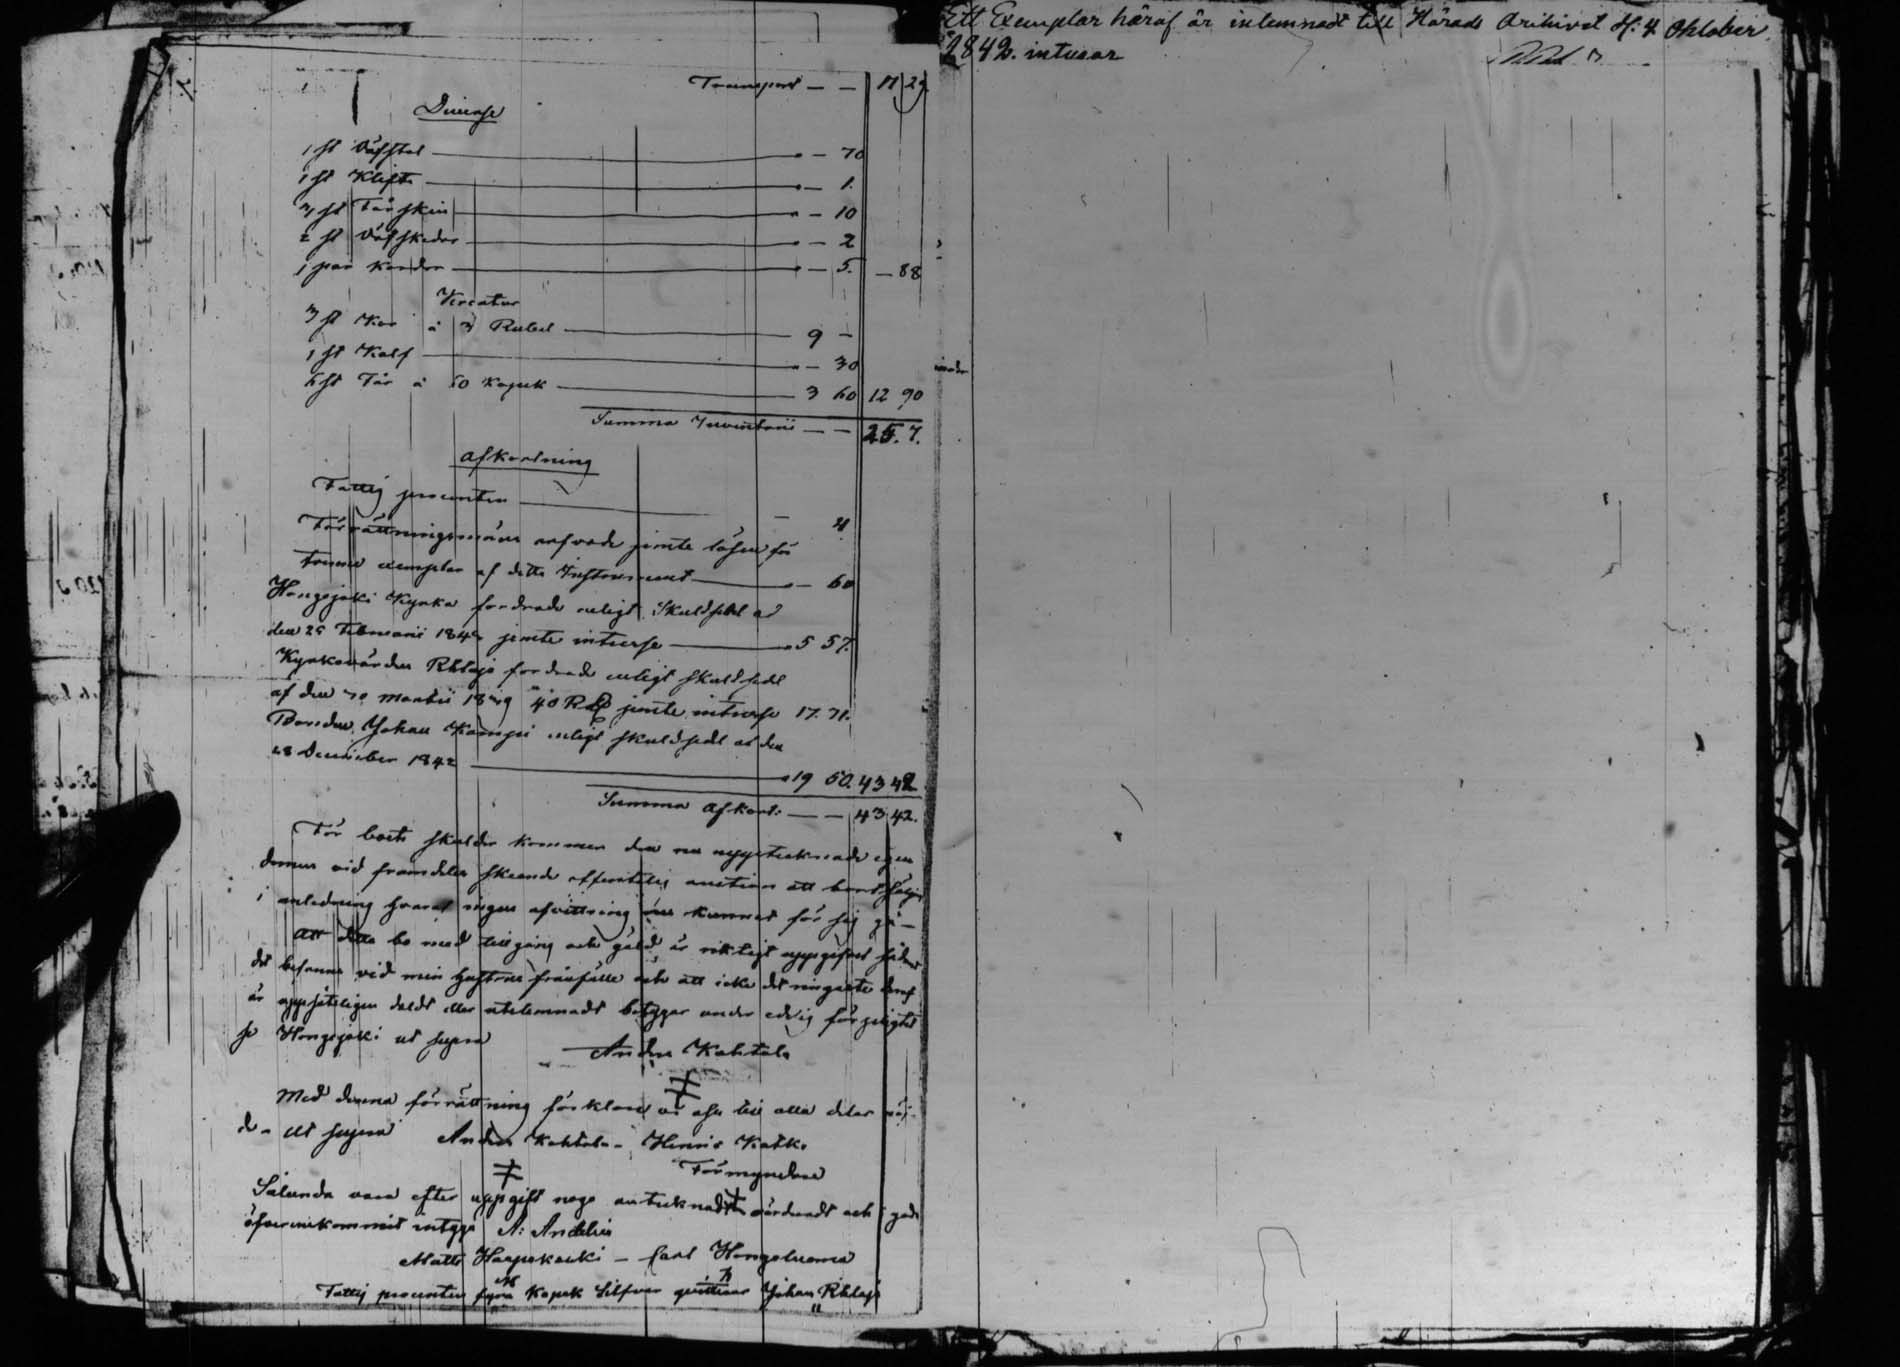 Transport — — 11 29
Diverse
1 st Väfstol — — 70
1 st Klifta — — 1.
3 st Fårskin — — 10
2 st Väfskedar — — 2
1 par Kardor — — 5. — 88
Kreatur
3 st Kor á 3 Rubel — 9 —
1 st Kalf — — 30
6 st Får á 60 Kopek — 3 60 12 90
Summa Inventarii — — 25. 7.
Afkortning
Fattig procenten — — 4
Förrättningsmäns arfvode jemte lösen för
tvenne exemplar af detta Instrument — — 60
Hongojoki Kyrka fordrade enligt Skuldsedel af
den 25 Februarii 184 jemte intresse — 5 57.
Kyrkovärden Rhlajs fordrade enligt skuldsedel
af den 30 Martii 1839 40 R jemte intresse 17. 71.
Bonden Johan Kampi enligt skuldsedel af den
28 December 1842 — 19 50. 43 42
Summa Afkort: — — 43 42.
För boets skulder kommer den nu uppteknade egen
domen vid framdeles skeende offentelig auction att bortsäljas
i anledning hvaraf ingen afvittring nu kunnat för sig gå —
Att detta bo med tillgång och gäld är riktigt uppgifvet sådant
det befanns vid min hustrus frånfälle och att icke det ringaste deraf
är uppsåteligen doldt eller utelemnadt betygar under edelig förpligtelse
Hongojoki ut supra
Anders Kahtala
Med denna förrättning förklara vi oss till alla delar nöj-
de — Ut supra Anders Kahtala — Henric Katko
Förmyndare
Sålunda vara efter uppgift noga antecknadt värderadt och i godo
öfverenskommit intyga A: Andelin
Matts Haapakoski — Carl Hongoluoma
Fattig procenten fyra Kopek Silfver quitterar Johan Rhlajs
Ett Exemplar häraf är inlemnadt till Härads Arkivet d: 4 Oktober
1842. intygar